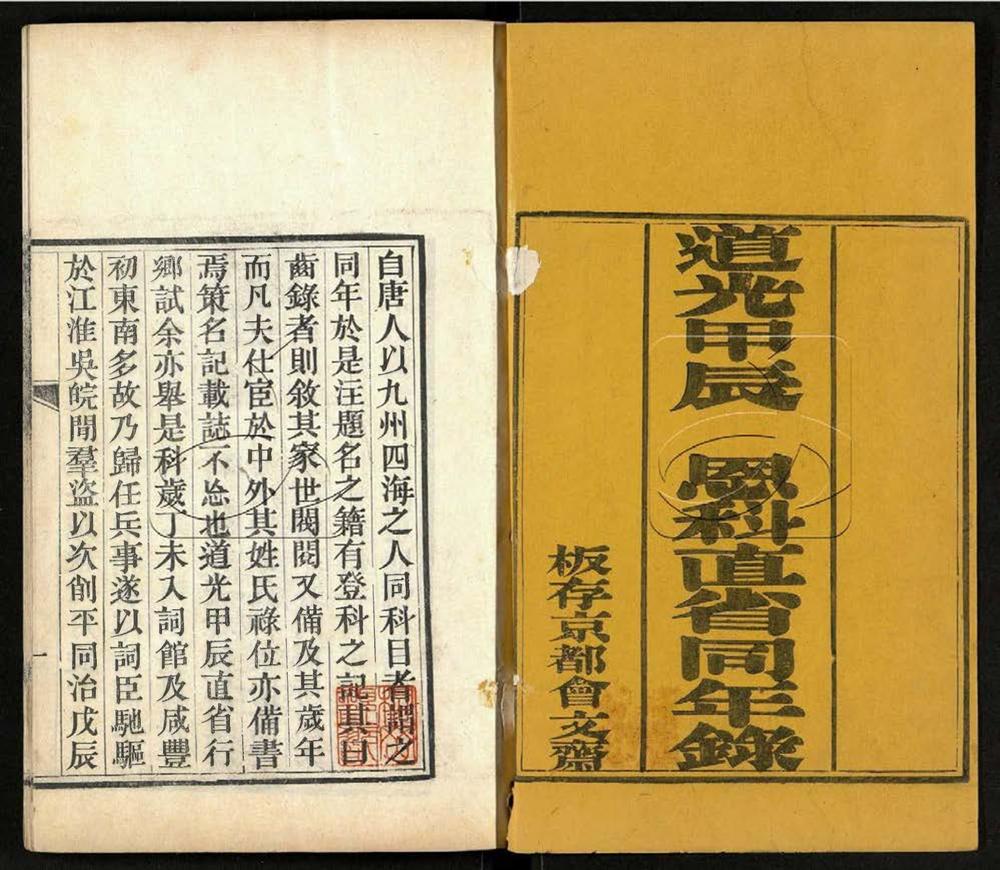 道光甲辰 恩科直省同年錄
板存京都會文齋
自唐人以九州四海之人同科目者謂之
同年於是注題名之籍有登科之記其曰
齒錄者則敘其家世閥閱又備及其歲年
而凡夫仕宦於中外其姓氏祿位亦備書
焉策名記載誌不忘也道光甲辰直省行
鄉試余亦舉是科歲丁未入詞館及咸豐
初東南多故乃歸任兵事遂以詞臣馳驅
於江淮吳皖間羣盜以次削平同治戊辰
一